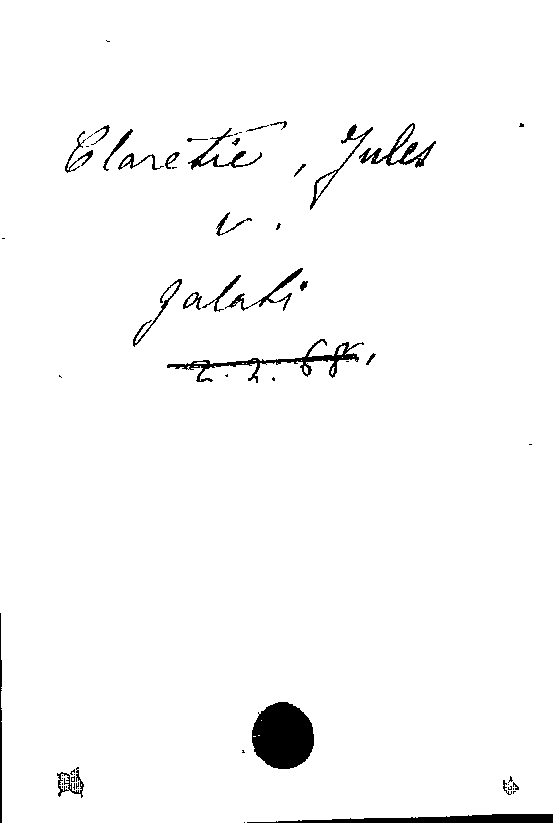 Claretie, Jules
v.
Galati
2. 2. 68.